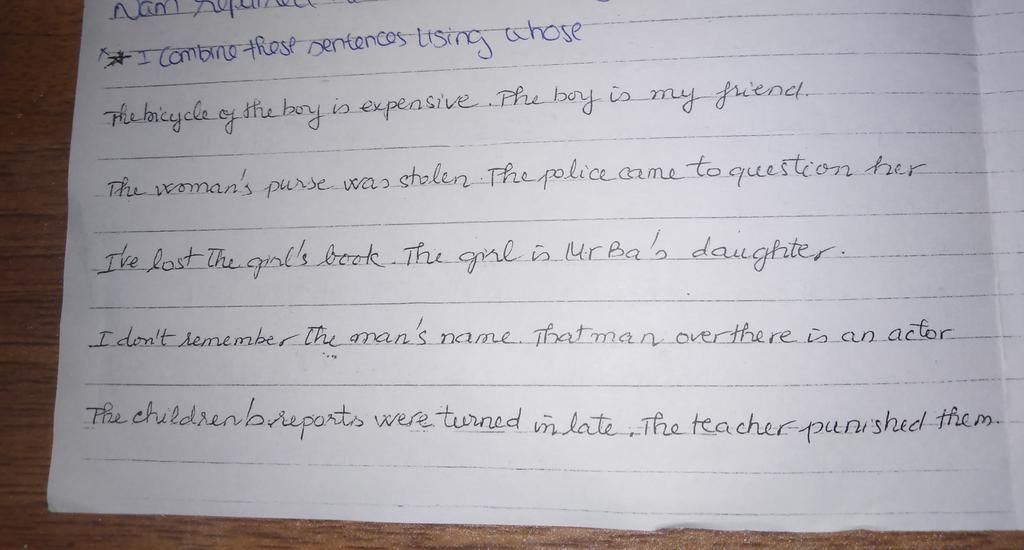 Nam
* I combine these sentences Using whose
The bicycle of the boy is expensive. The boy is my friend.
The woman's purse was stolen. The police came to question her
I've lost The girl's book. The girl is Mr Ba's daughter.
I don't remember The man's name. That man over there is an actor
The children's reports were turned in late. The teacher punished them.